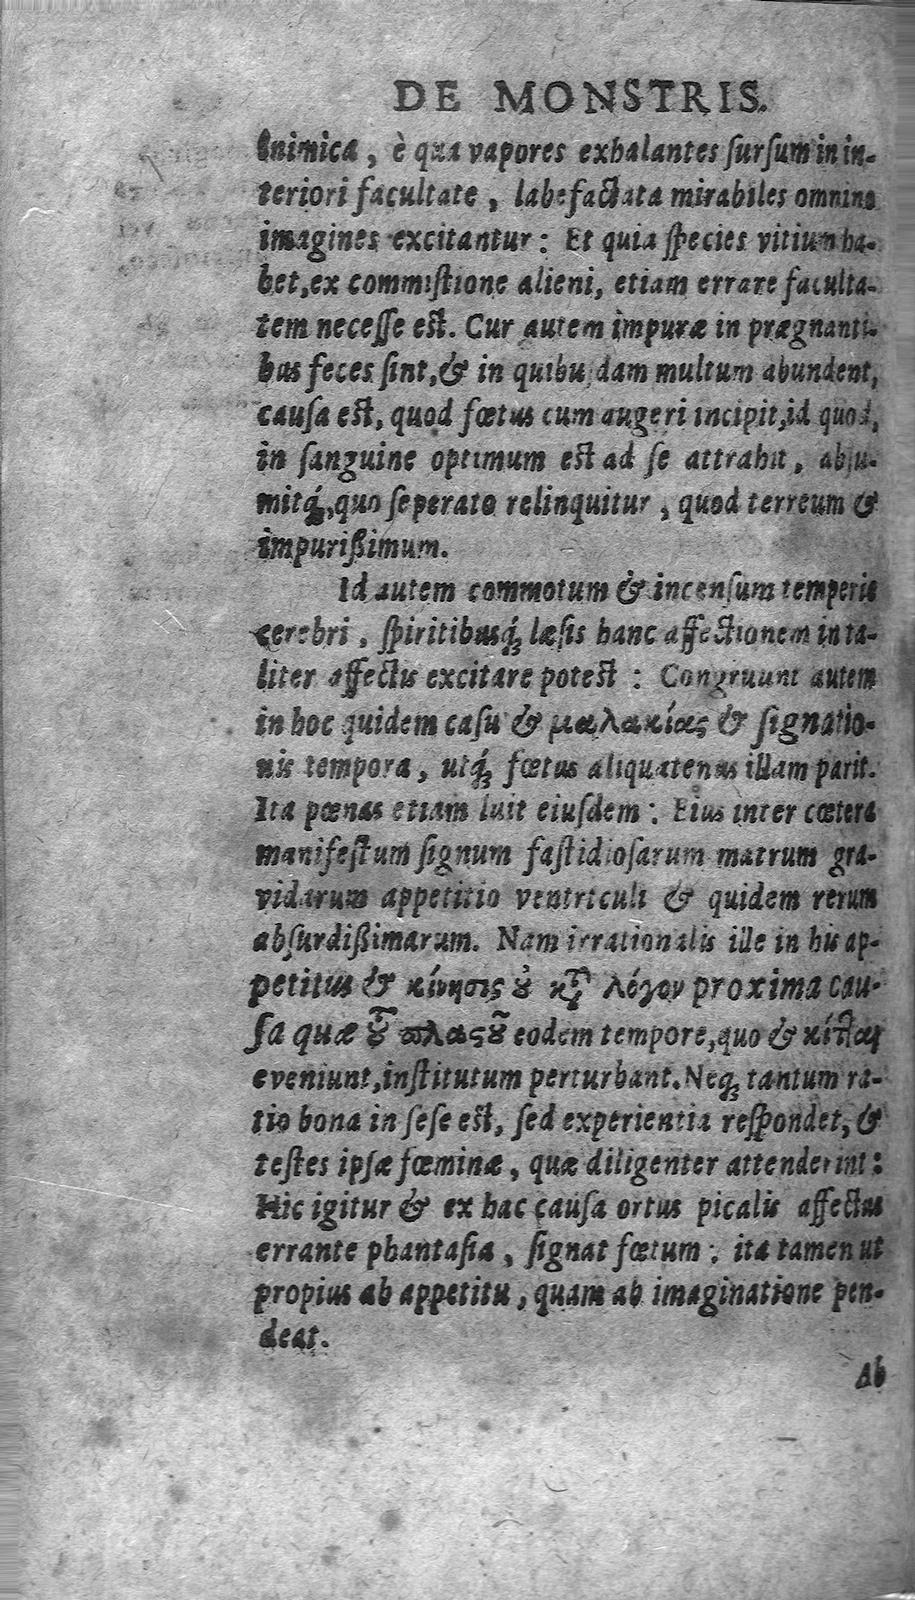 DE MONSTRIS.
Inimica, è qua vapores exhalantes ſurſum in in-
teriori facultate, labefactata mirabiles omnino
imagines excitantur: Et quia ſpecies vitium ha-
bet, ex commiſtione alieni, etiam errare faculta-
tem neceſſe eſt. Cur autem impuræ in prægnanti-
bus feces ſint, & in quibuſdam multum abundent,
cauſa eſt, quod fœtus cum augeri incipit, id quod,
in ſanguine optimum eſt ad ſe attrahit, abſu-
mitq́;, quo ſeperato relinquitur, quod terreum &
impurißimum.
Id autem commotum & incenſum temperie
cerebri, ſpiritibusq́; læſis hanc affectionem in ta-
liter affectis excitare poteſt: Congruunt autem
in hoc quidem caſu & μαλακίας & ſignatio-
nis tempora, utq́; fœtus aliquatenus illam parit.
Ita pœnas etiam luit eiuſdem: Eius inter cœtera
manifeſtum ſignum faſtidioſarum matrum gra-
vidarum appetitio ventriculi & quidem rerum
abſurdißimarum. Nam irrationalis ille in his ap-
petitus & κίνησις ȣ̓ κτ̀ λόγον proxima cau-
ſa quæ eodem tempore, quo & κίτται
eveniunt, inſtitutum perturbant. Neq; tantum ra-
tio bona in ſeſe eſt, ſed experientia reſpondet, &
teſtes ipſæ fœminæ, quæ diligenter attenderint:
Hic igitur & ex hac cauſa ortus picalis affectus
errante phantaſia, ſignat fœtum: ita tamen ut
propius ab appetitu, quam ab imaginatione pen-
deat.
Ab